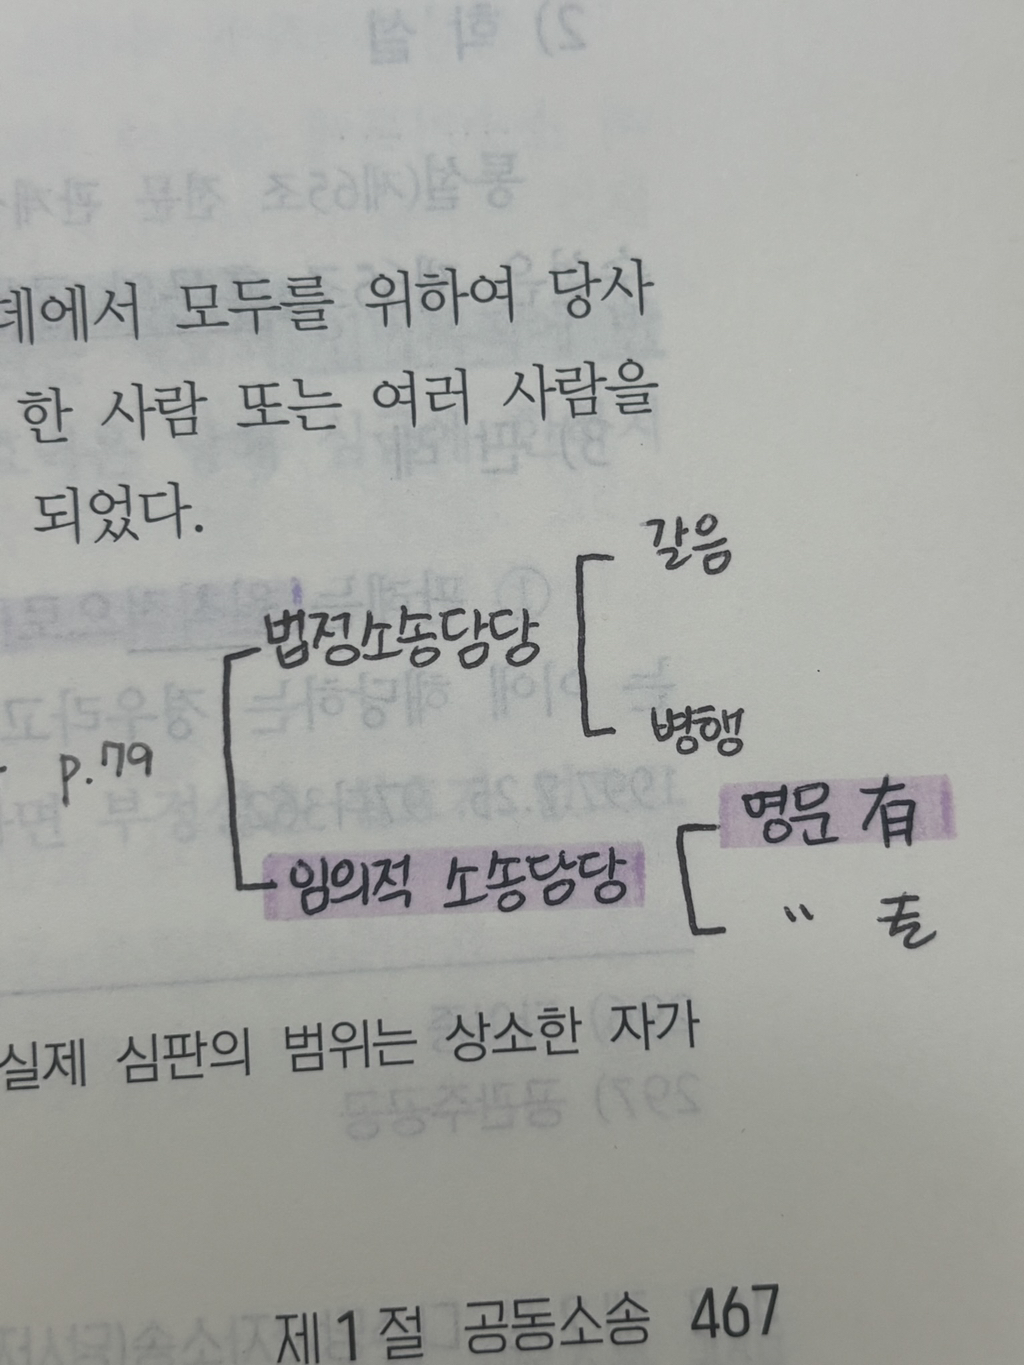 에서 모두를 위하여 당사
한 사람 또는 여러 사람을
되었다.
갈음
법정소송담당
병행
p.79
명문 有
임의적 소송담당
" 無
실제 심판의 범위는 상소한 자가
제1절 공동소송 467